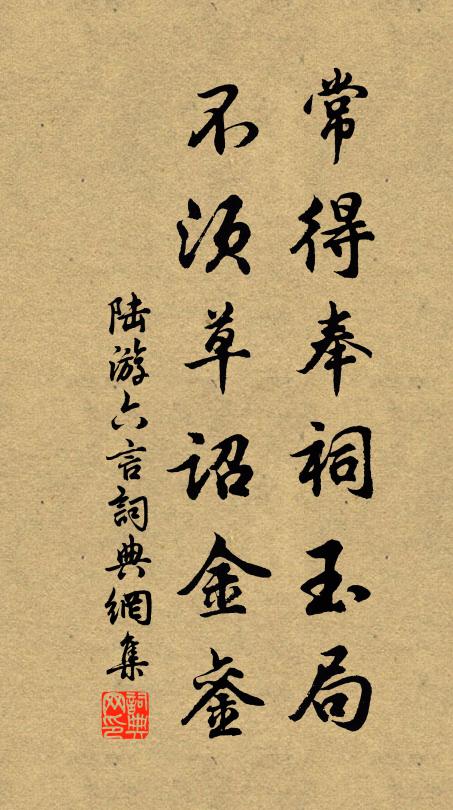 常得奉祠玉局
不須草詔金銮
陸游六言詞典網集
詞典
网印